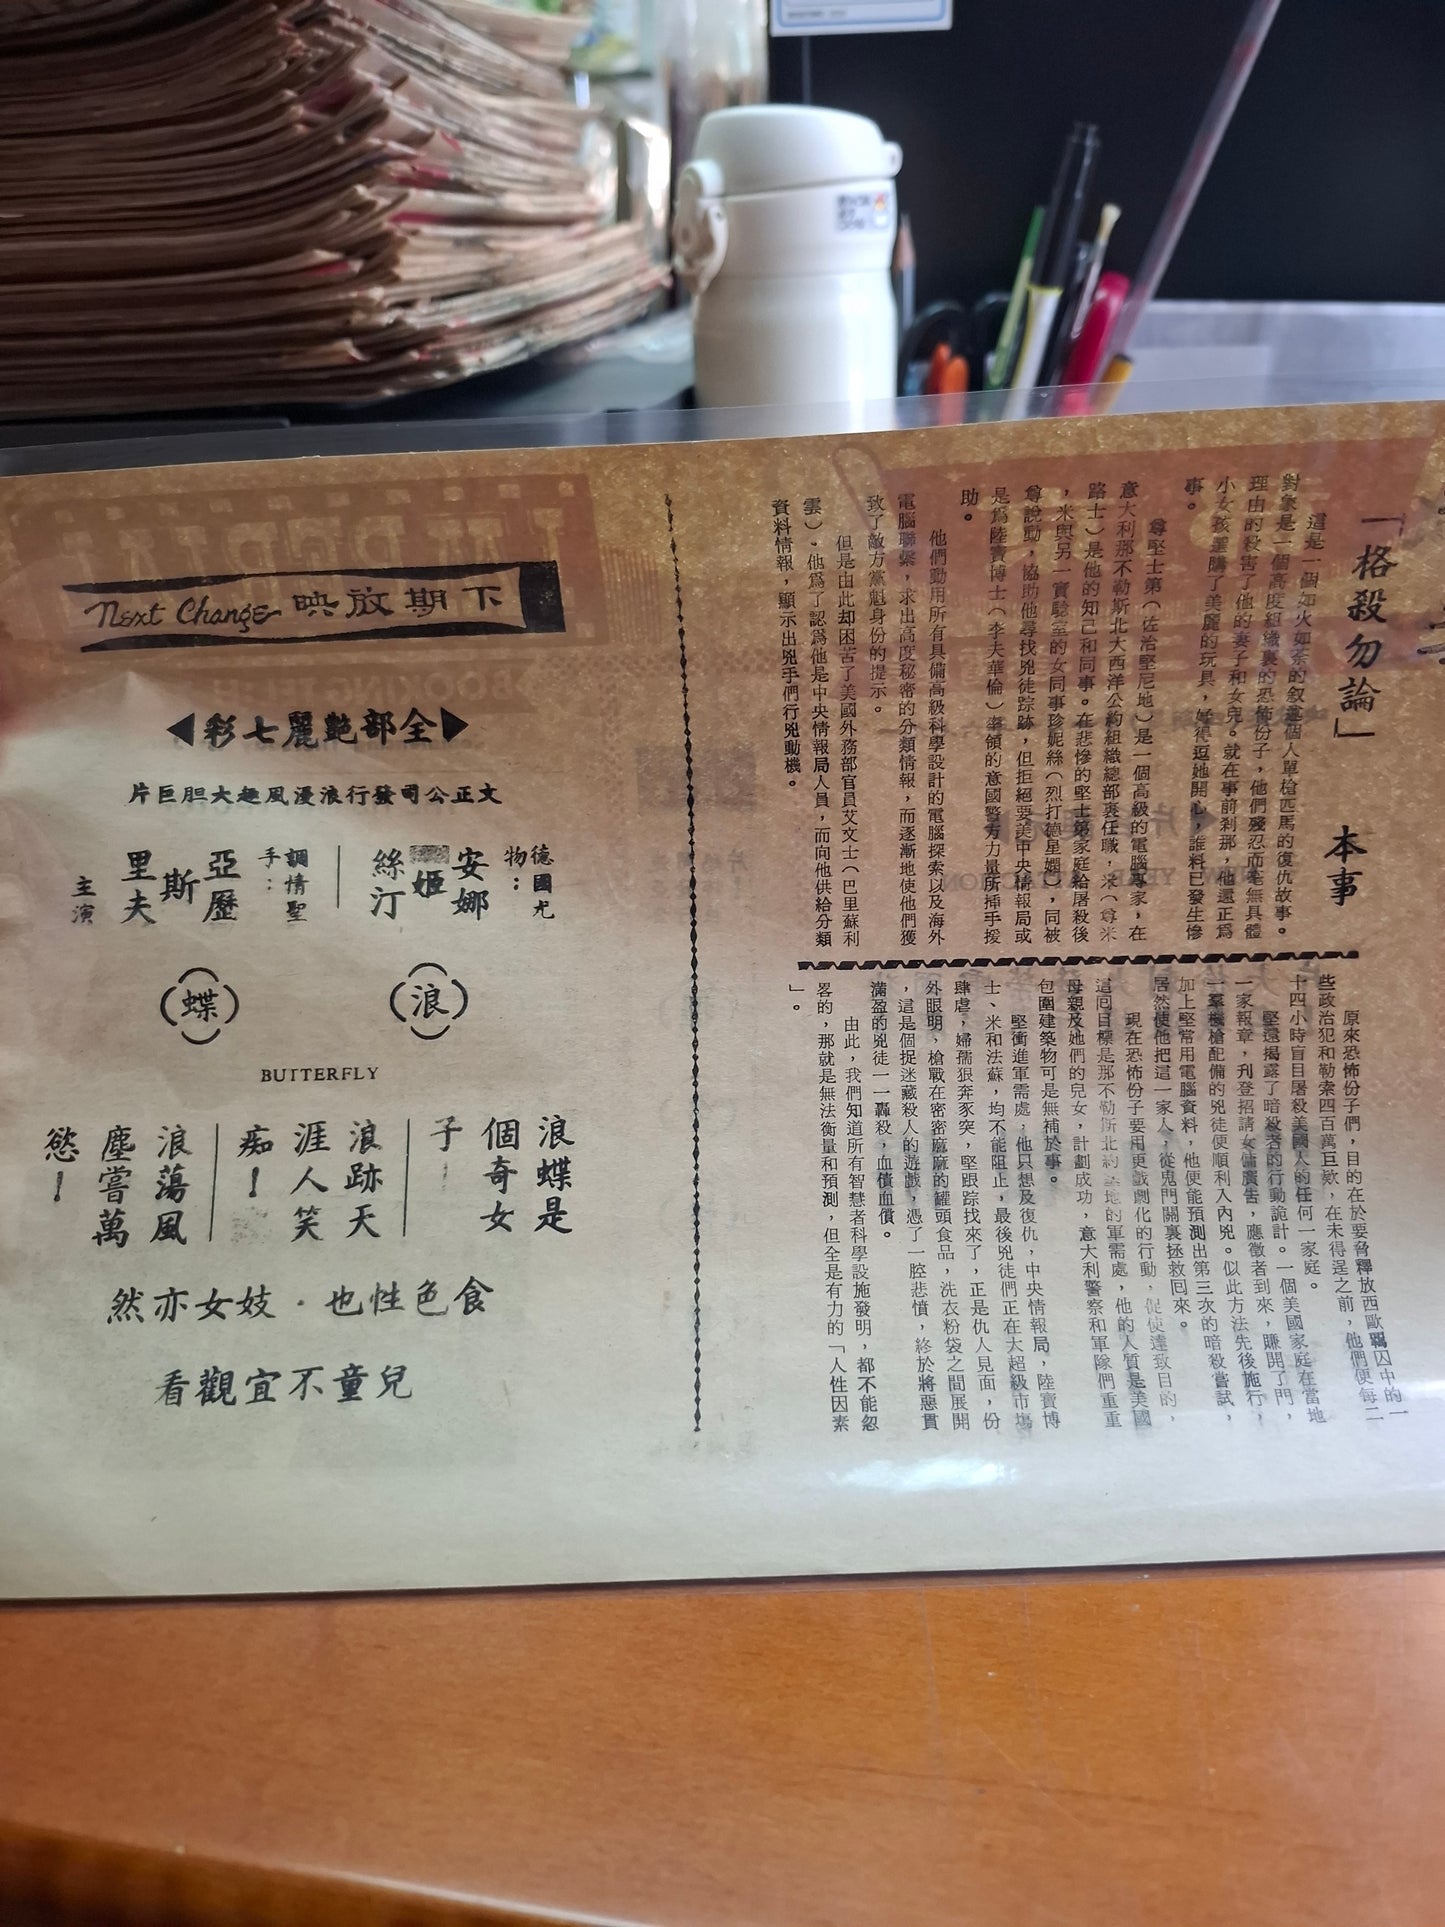 「格殺勿論」 本事
這是一個如火如荼的叙述個人單槍匹馬的復仇故事。
對象是一個高度組織裏的恐怖份子，他們殘忍而毫無具體
理由的殺害了他的妻子和女兒。就在事前刹那，他還正爲
小女孩選購了美麗的玩具，好得逗她開心，誰料已發生慘
事。
尊堅士第（佐治堅尼地）是一個高級的電腦專家，在
意大利那不勒斯北大西洋公約組織總部裏任職，米（尊米
路士）是他的知己和同事。在悲慘的堅士第家庭給屠殺後
，米與另一實驗室的女同事珍妮絲（烈打德星嫻），同被
尊說動，協助他尋找兇徒踪跡，但拒絕要美中央情報局或
是爲陸寶博士（李夫華倫）率領的意國警方力量所揷手援
助。
他們動用所有具備高級科學設計的電腦探索以及海外
電腦聯繫，求出高度秘密的分類情報，而逐漸地使他們獲
致了敵方黨魁身份的提示。
但是由此却困苦了美國外務部官員艾文士（巴里蘇利
雲）。他爲了認爲他是中央情報局人員，而向他供給分類
資料情報，顯示出兇手們行兇動機。
原來恐怖份子們，目的在於要脅釋放西歐羈囚中的一
些政治犯和勒索四百萬巨欵，在未得逞之前，他們便每二
十四小時盲目屠殺美國人的任何一家庭。
堅還揭露了暗殺者的行動詭計。一個美國家庭在當地
一家報章，刊登招請女傭廣告，應徵者到來，賺開了門，
一羣機槍配備的兇徒便順利入內兇。似此方法先後施行，
加上堅常用電腦資料，他便能預測出第三次的暗殺嘗試，
居然使他把這一家人，從鬼門關裏拯救回來。
現在恐怖份子要用更戲劇化的行動，促使達致目的，
這囘目標是那不勒斯北約基地的軍需處，他的人質是美國
母親及她們的兒女，計劃成功，意大利警察和軍隊們重重
包圍建築物可是無補於事。
堅衝進軍需處，他只想及復仇，中央情報局，陸寶博
士、米和法蘇，均不能阻止，最後兇徒們正在大超級市塲
肆虐，婦孺狠奔豕突，堅跟踪找來了，正是仇人見面，份
外眼明，槍戰在密密麻麻的罐頭食品，洗衣粉袋之間展開
，這是個捉迷藏殺人的遊戲，憑了一腔悲憤，終於將惡貫
滿盈的兇徒一一轟殺，血債血償。
由此，我們知道所有智慧者科學設施發明，都不能忽
畧的，那就是無法衡量和預測，但全是有力的「人性因素
」。
下期放映 Next Change
▶全部艶麗七彩◀
文正公司發行浪漫風趣大胆巨片
德國尤物：
安娜姬絲汀
調情聖手：
亞歷斯里夫
主演
（浪）（蝶）
BUTTERFLY
浪蝶是
個奇女
子！
浪跡天
涯人笑
痴！
浪蕩風
塵嘗萬
慾！
食色性也．妓女亦然
兒童不宜觀看